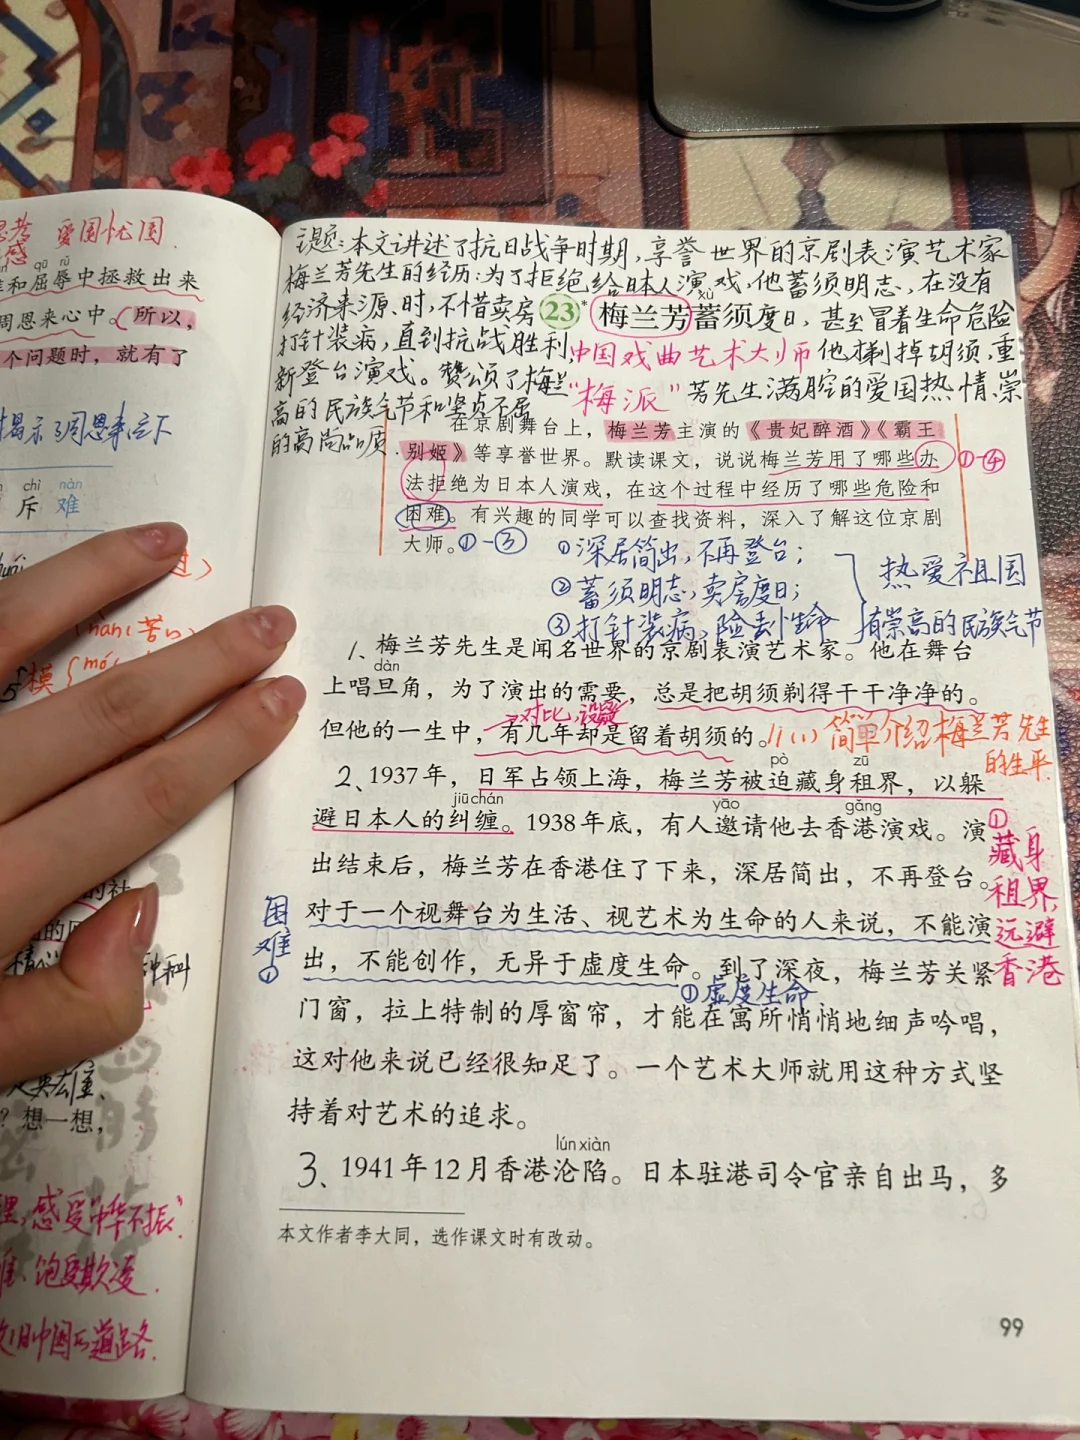 思考 爱国忧国
感
qū rǔ
和屈辱中拯救出来
周恩来心中。所以，
个问题时，就有了
揭示了周恩来立下
chì nàn
斥 难
nàn(苦
模 mó
的社
？想一想，
感受"中华不振"
饱受欺凌.
旧中国的道路.
主题：本文讲述了抗日战争时期，享誉世界的京剧表演艺术家
梅兰芳先生的经历：为了拒绝给日本人演戏，他蓄须明志，在没有
经济来源、时，不惜卖房 23* 梅兰芳蓄须度日，甚至冒着生命危险
xù
打针装病，直到抗战胜利，中国戏曲艺术大师 他才剃掉胡须，重
新登台演戏。赞颂了梅兰 "梅派" 芳先生满腔的爱国热情、崇
高的民族气节和坚贞不屈
的高尚品质.
在京剧舞台上，梅兰芳主演的《贵妃醉酒》《霸王
别姬》等享誉世界。默读课文，说说梅兰芳用了哪些办 ①-④
法拒绝为日本人演戏，在这个过程中经历了哪些危险和
困难。有兴趣的同学可以查找资料，深入了解这位京剧
大师。①-③ ①深居简出，不再登台；
②蓄须明志，卖房度日； 热爱祖国
③打针装病，险丢性命 有崇高的民族气节
1、梅兰芳先生是闻名世界的京剧表演艺术家。他在舞台
dàn
上唱旦角，为了演出的需要，总是把胡须剃得干干净净的。
→对比，设疑
但他的一生中，有几年却是留着胡须的。//(1) 简单介绍梅兰芳先生
的生平.
pò zū
2、1937年，日军占领上海，梅兰芳被迫藏身租界，以躲
jiū chán yāo gǎng
避日本人的纠缠。1938年底，有人邀请他去香港演戏。演
出结束后，梅兰芳在香港住了下来，深居简出，不再登台。
①藏身
租界，
远避
香港
困难①
对于一个视舞台为生活、视艺术为生命的人来说，不能演
出，不能创作，无异于虚度生命。到了深夜，梅兰芳关紧
①虚度生命
门窗，拉上特制的厚窗帘，才能在寓所悄悄地细声吟唱，
这对他来说已经很知足了。一个艺术大师就用这种方式坚
持着对艺术的追求。
lún xiàn
3、1941年12月香港沦陷。日本驻港司令官亲自出马，多
本文作者李大同，选作课文时有改动。
99